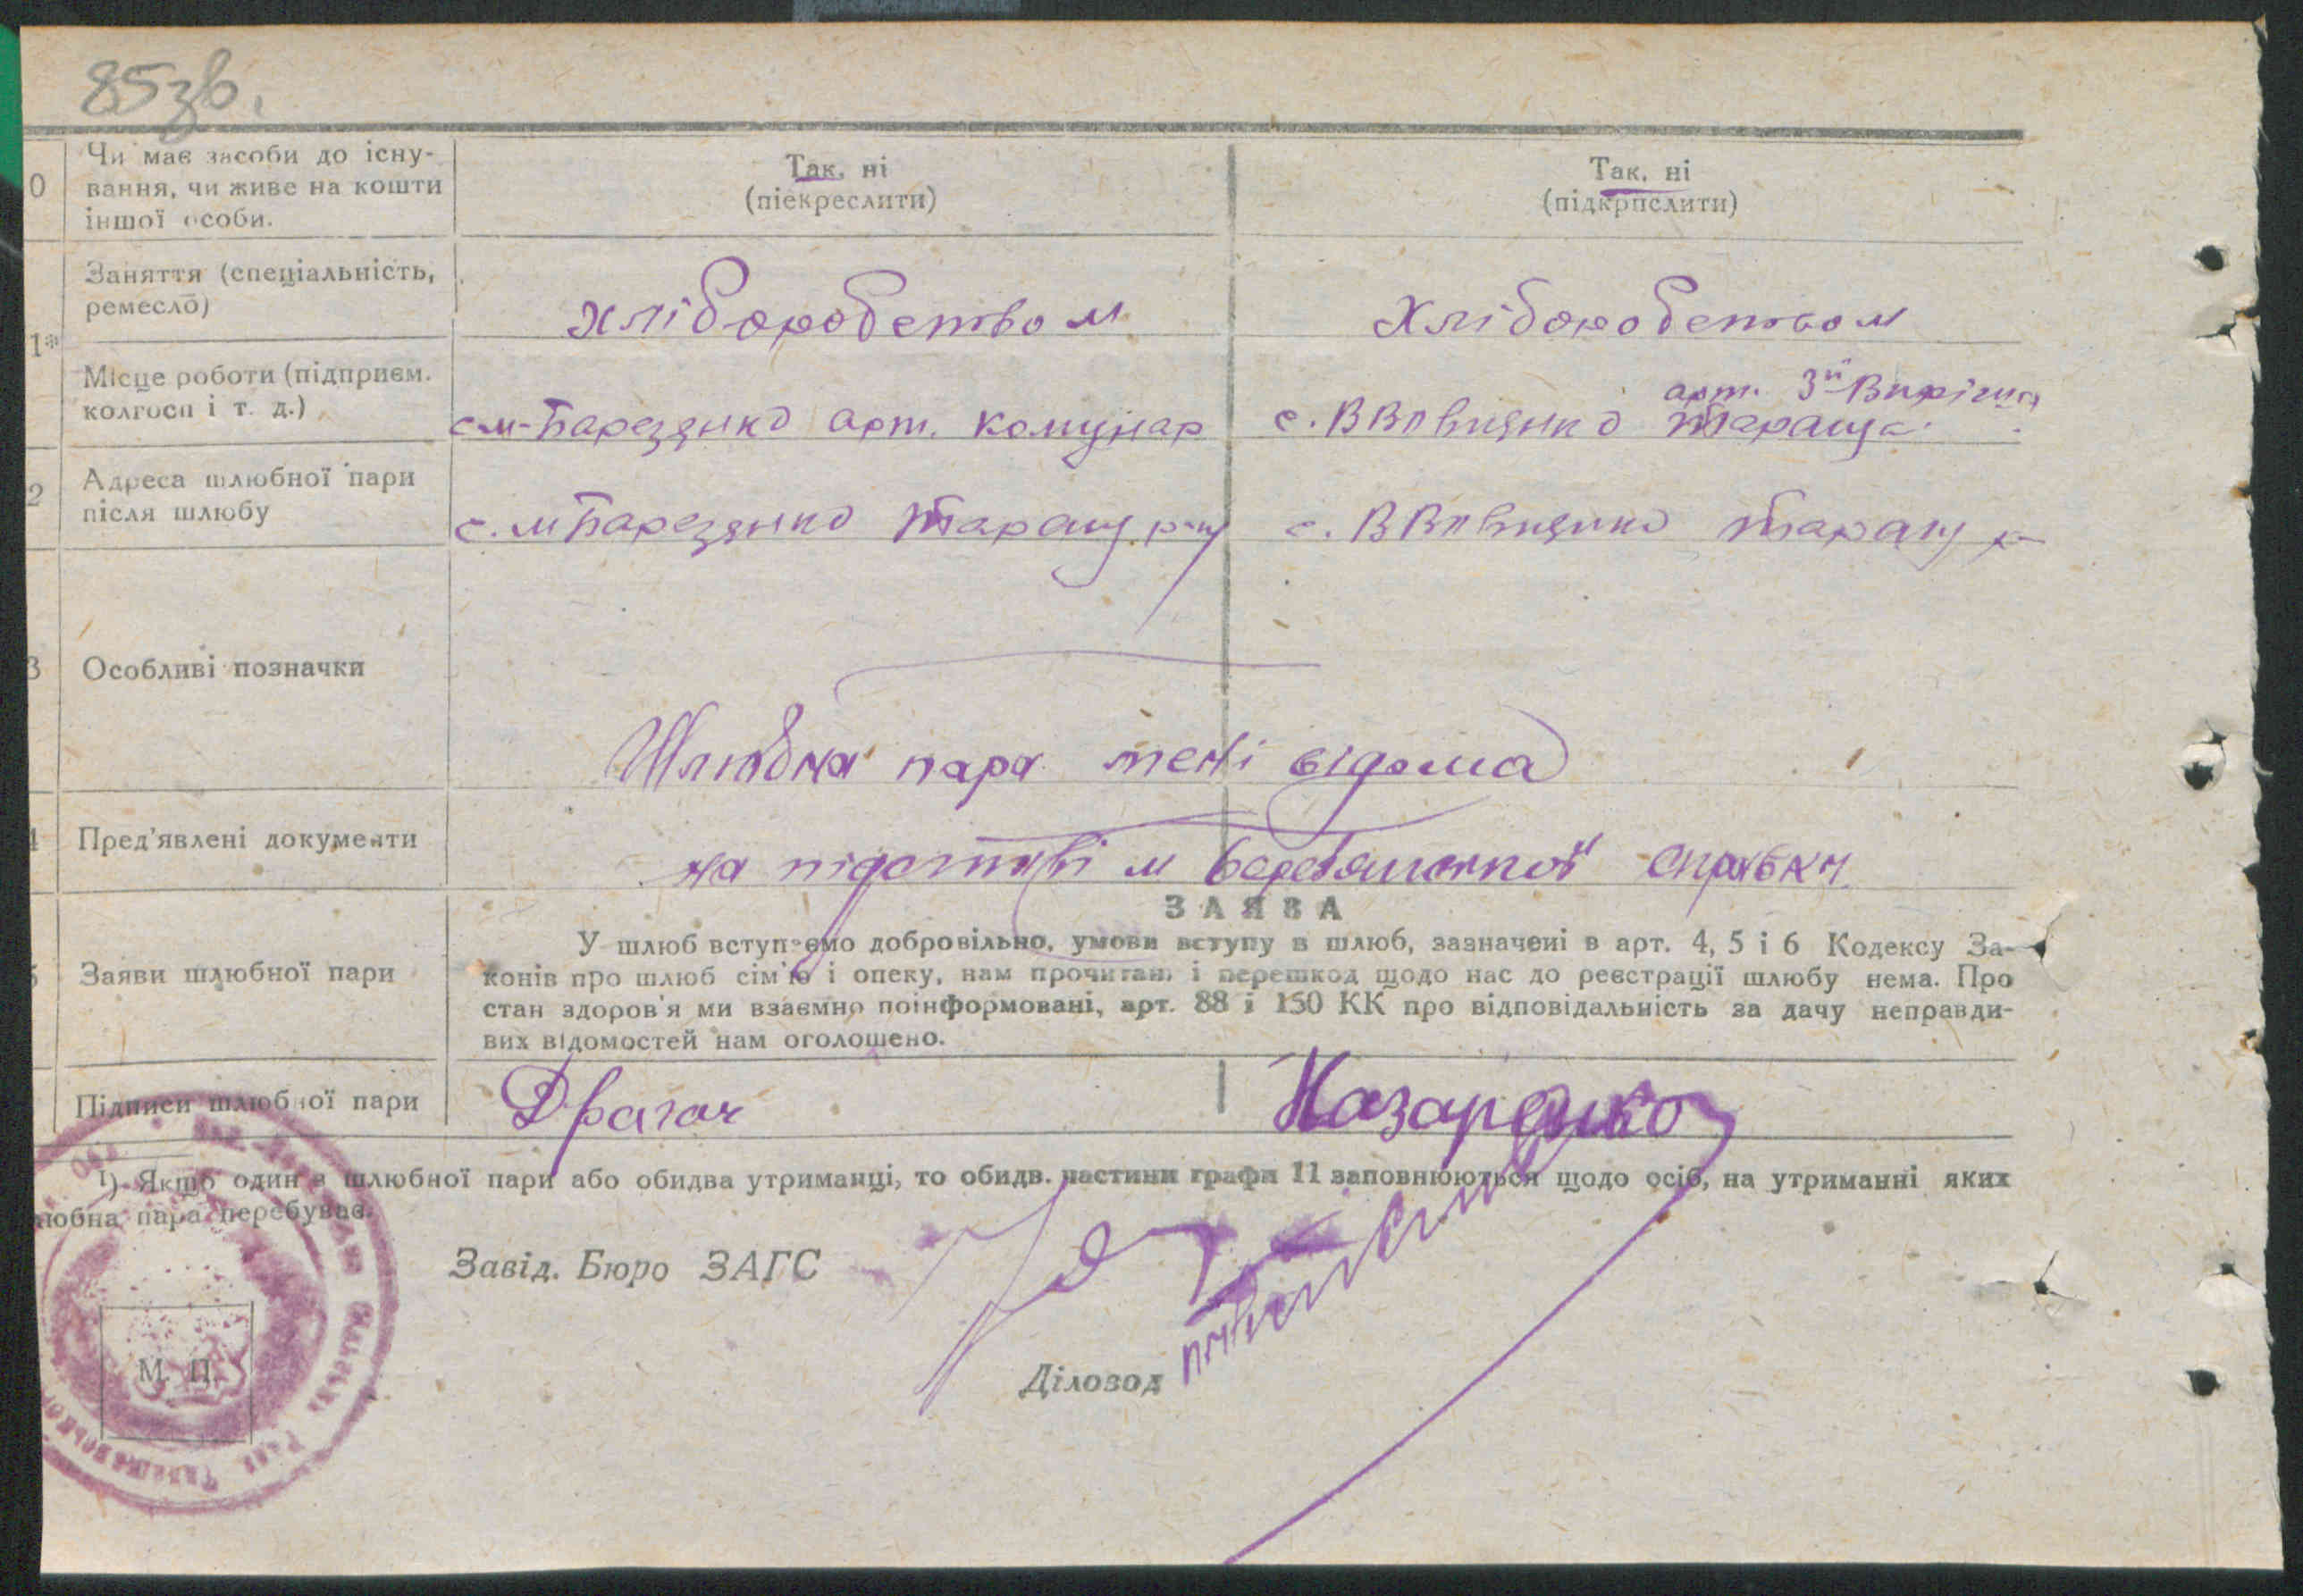 85зв.
0 Чи має засоби до існу-
вання, чи живе на кошти
іншої особи.
Так, ні
(піекреслити)
Так, ні
(підкрпслити)
Заняття (спеціальність,
ремесло)
хліборобством
Хліборобством
Місце роботи (підприєм.
колгосп і т. д.)
арт. комунар
арт.
Тараща
2 Адреса шлюбної пари
після шлюбу
Таращ
Таращ
3 Особливі позначки
Шлюбна пара мені відома
Пред'явлені документи
на підставі справки
ЗАЯВА
Заяви шлюбної пари
У шлюб вступаємо добровільно, умови вступу в шлюб, зазначені в арт. 4, 5 і 6 Кодексу За-
конів про шлюб сім'ю і опеку, нам прочитані і перешкод щодо нас до реєстрації шлюбу нема. Про
стан здоров'я ми взаємно поінформовані, арт. 88 і 150 КК про відповідальність за дачу неправди-
вих відомостей нам оголошено.
Підписи шлюбної пари
Драгач
Назаренко
¹) Якщо один з шлюбної пари або обидва утриманці, то обидв. частини графи 11 заповнюються щодо осіб, на утриманні яких
любна пара перебуває.
Завід. Бюро ЗАГС
Діловод
М. П.